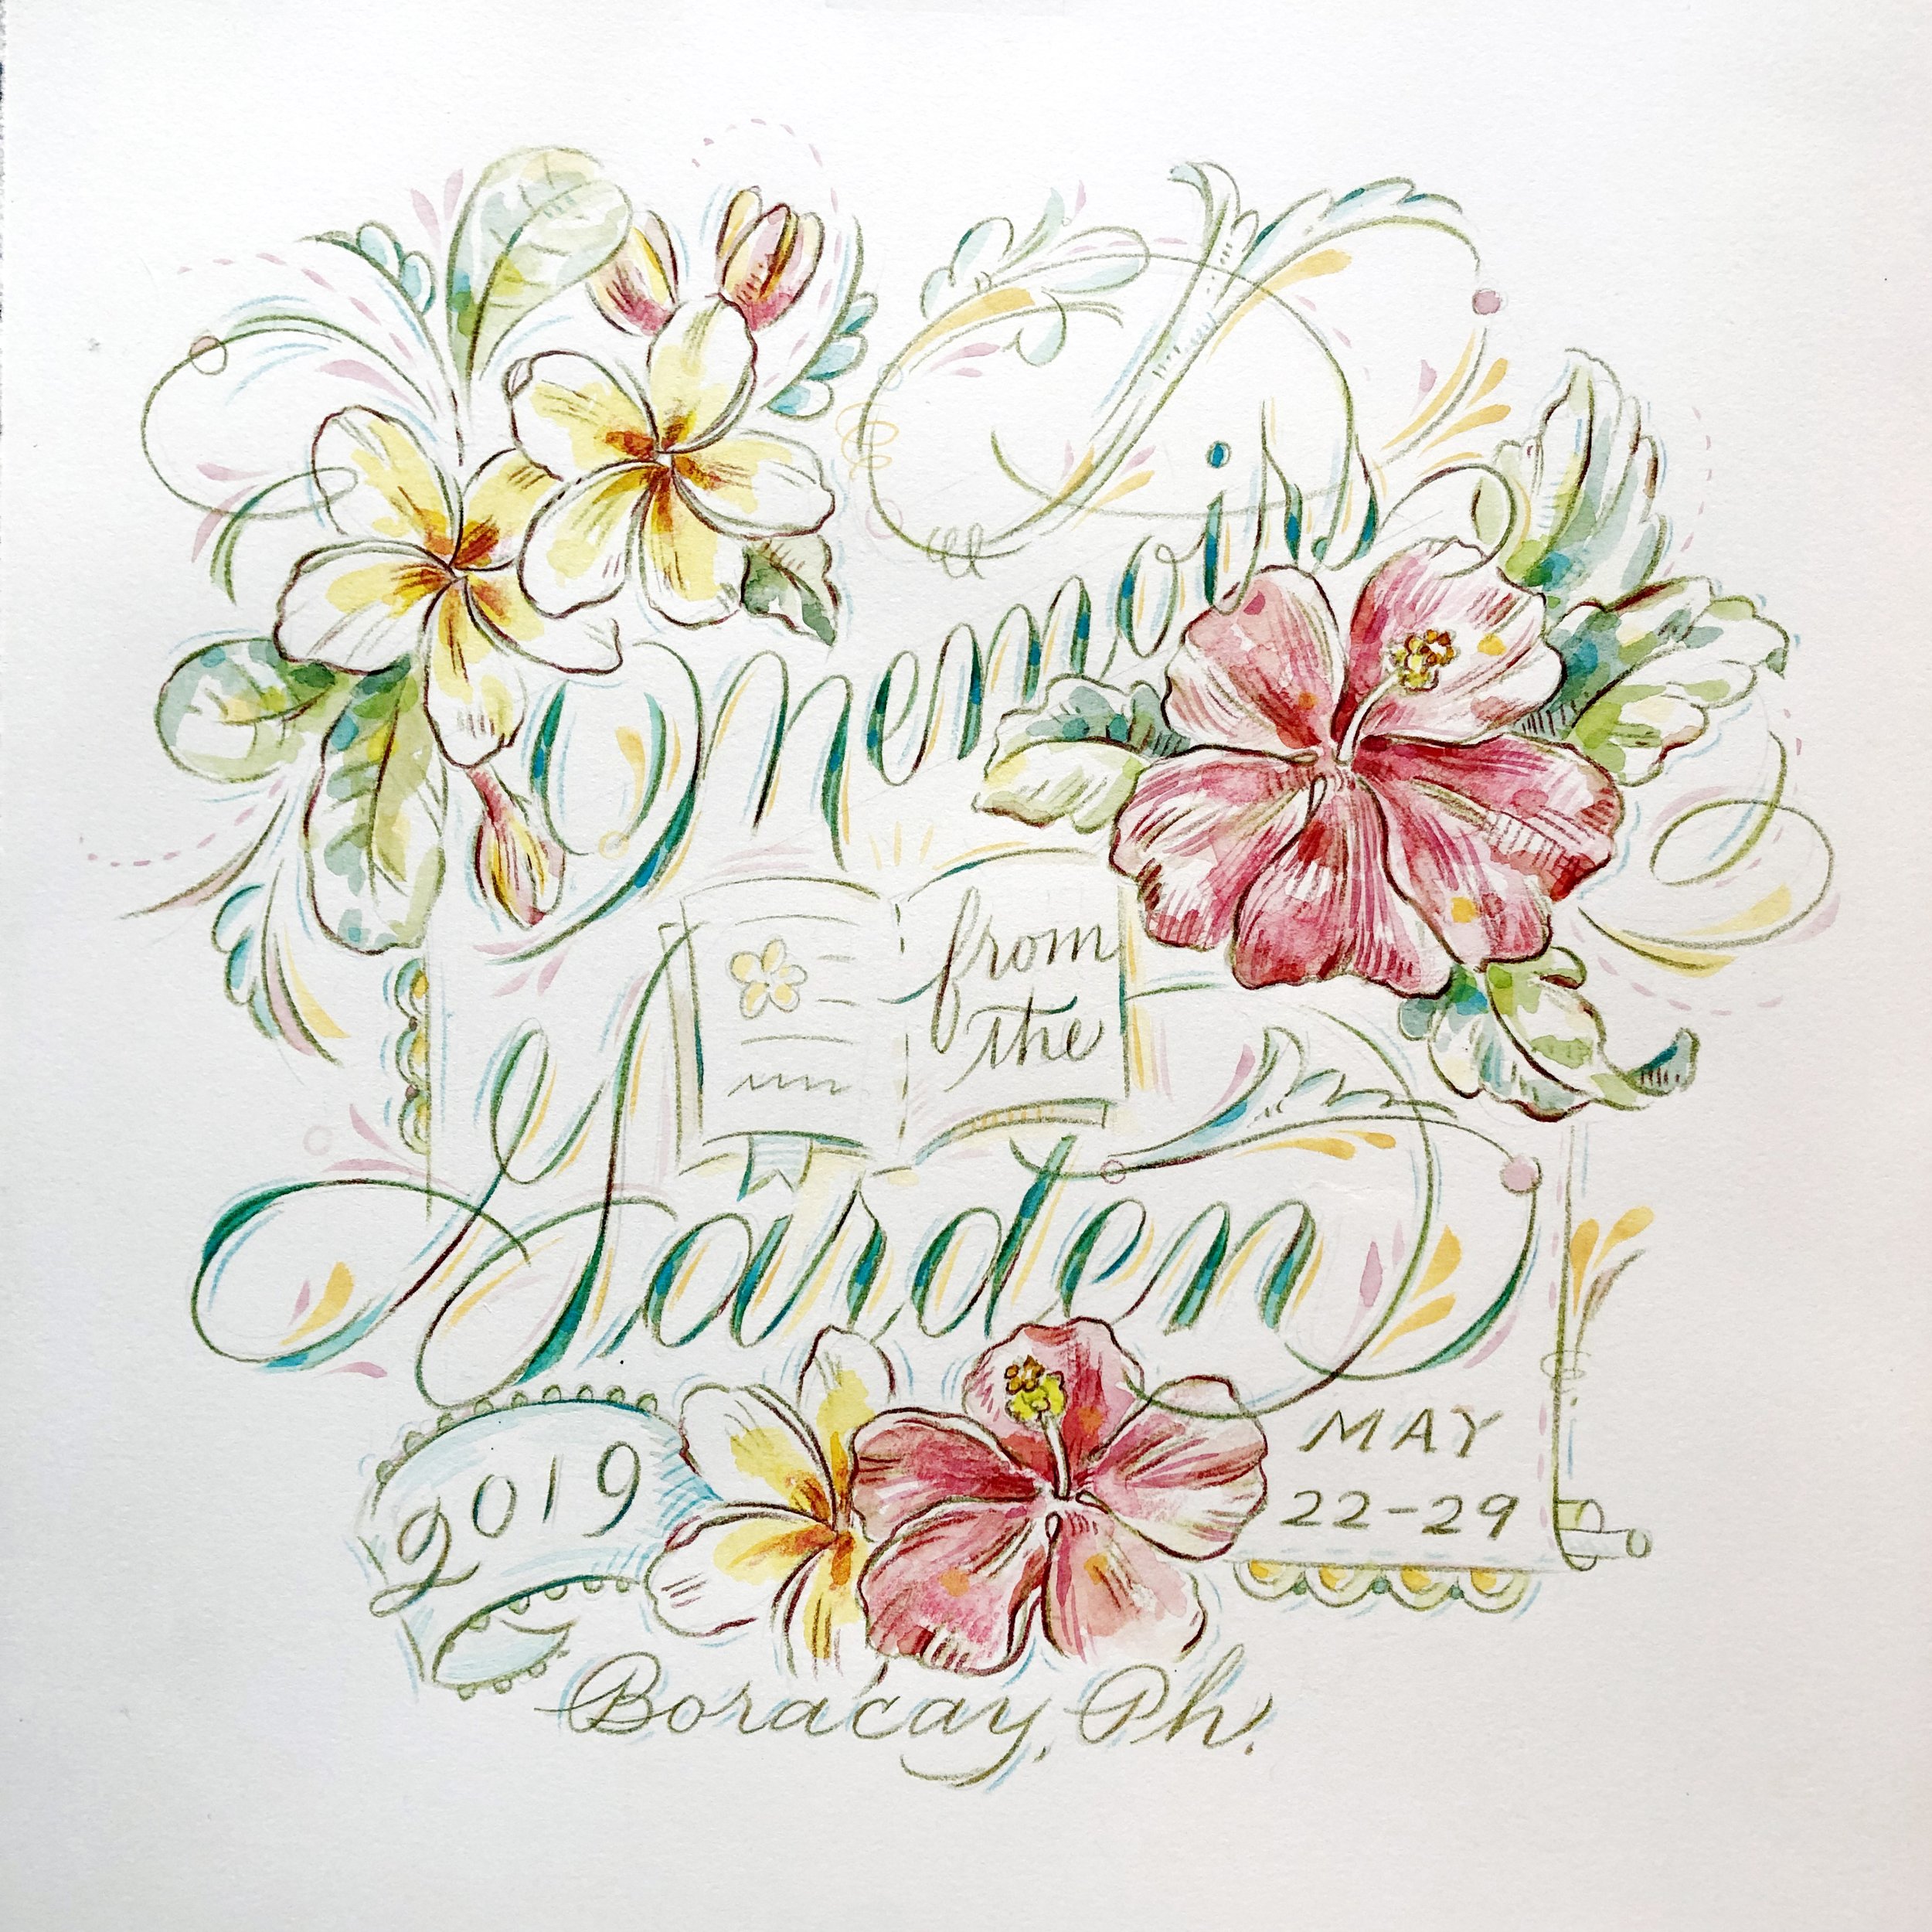 Memoirs
from
the
Garden
2019
MAY
22-29
Boracay, Ph.